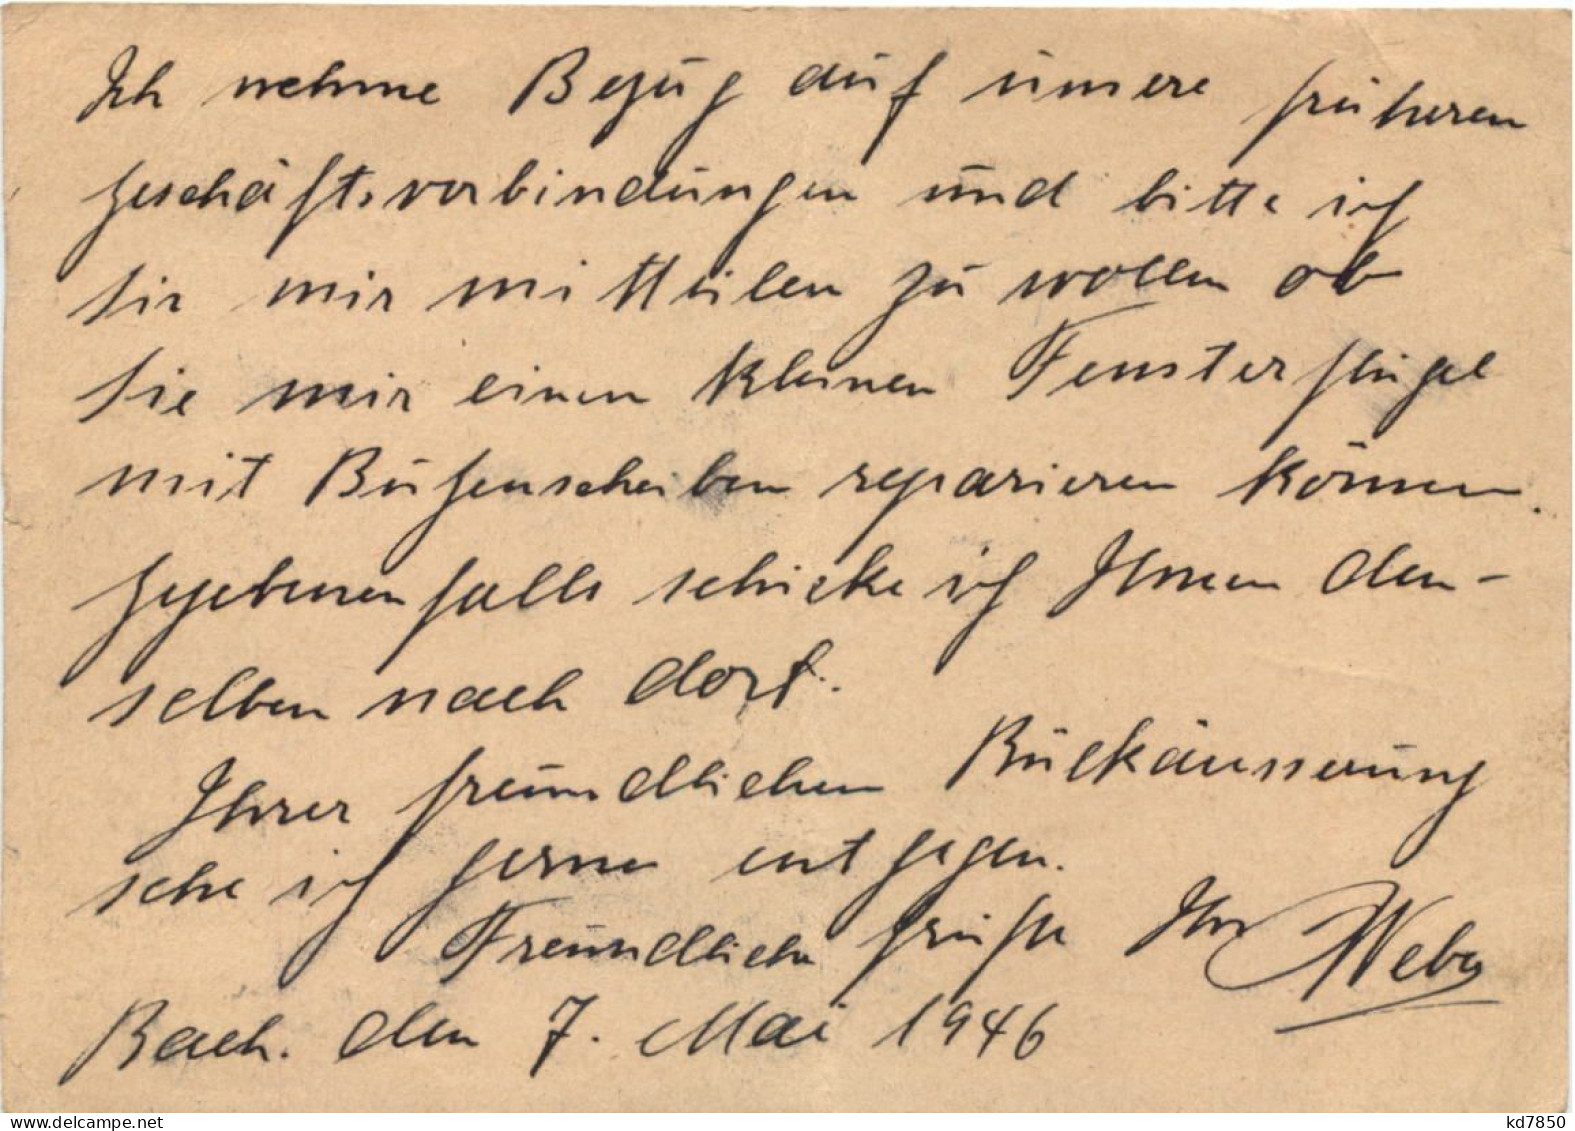 Ich nehme Bezug auf unsere früheren
geschäftsverbindungen und bitte ich
Sie mir mitteilen zu wollen ob
Sie mir einen kleinen Fensterflügel
mit Butzenscheiben reparieren können.
gegebenenfalls schicke ich Ihnen den-
selben nach dort.
Ihrer freundlichen Rückäusserung
sehe ich gerne entgegen.
Freundliche grüße Ihr Weber
Bach. den 7. Mai 1946
www.delcampe.net
kd7850